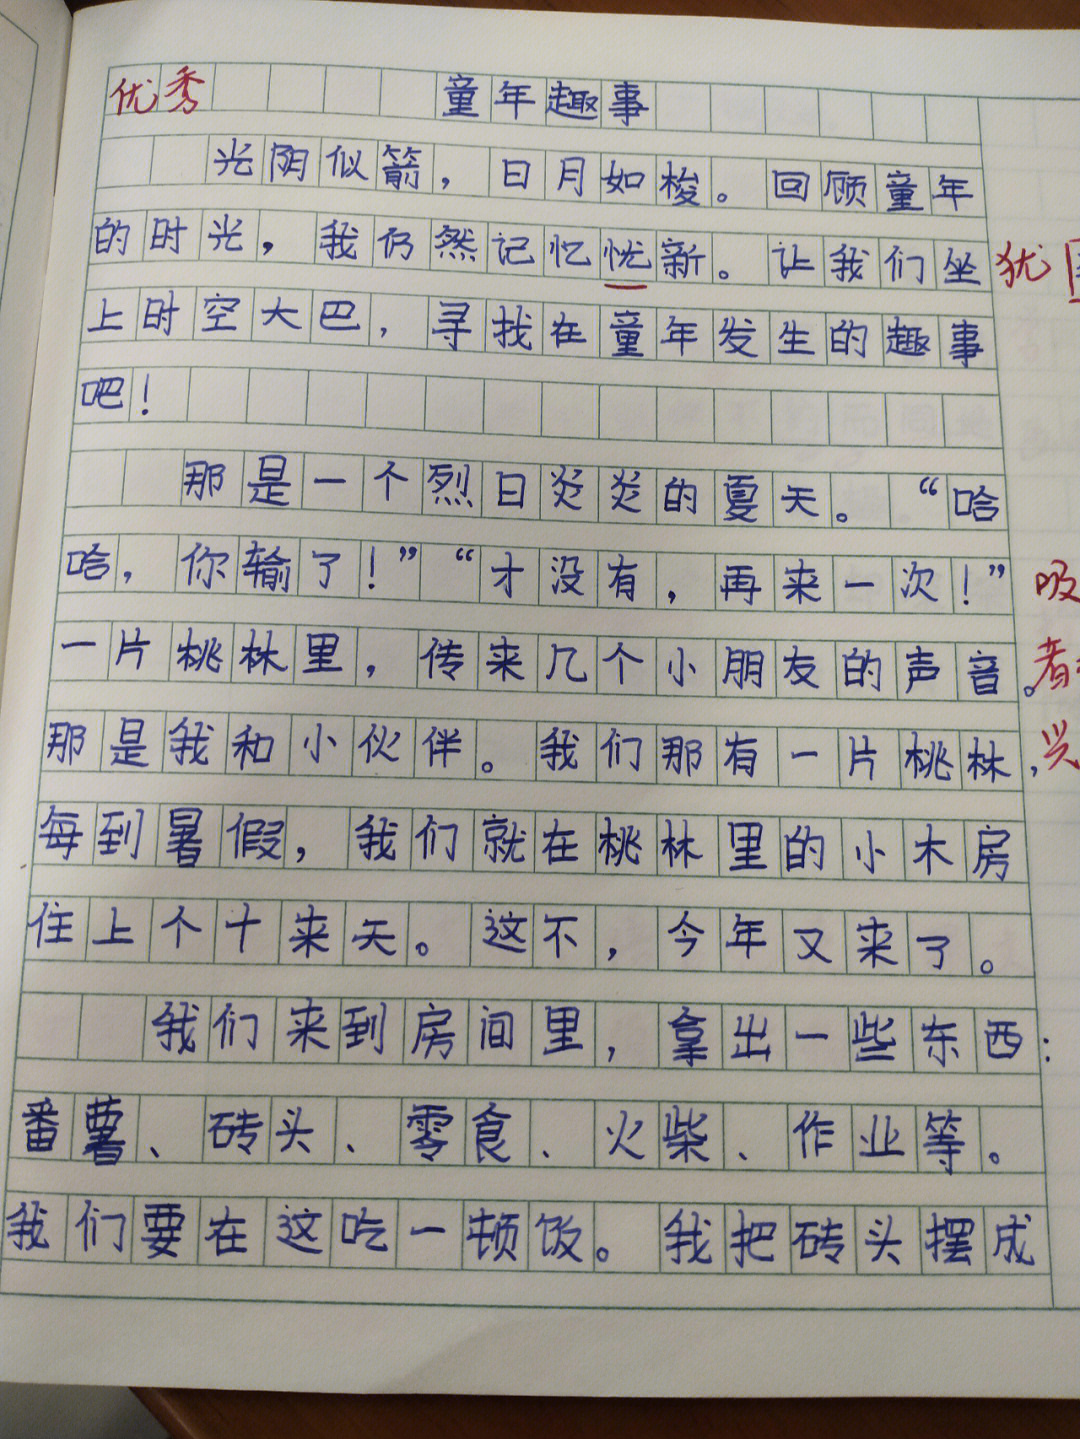 优秀 童年趣事
光阴似箭，日月如梭。回顾童年
的时光，我仍然记忆忧新。让我们坐 犹
上时空大巴，寻找在童年发生的趣事
吧！
那是一个烈日炎炎的夏天。“哈
哈，你输了！”“才没有，再来一次！” 吸
一片桃林里，传来几个小朋友的声音。 者
那是我和小伙伴。我们那有一片桃林， 兴
每到暑假，我们就在桃林里的小木房
住上个十来天。这不，今年又来了。
我们来到房间里，拿出一些东西：
番薯、砖头、零食、火柴、作业等。
我们要在这吃一顿饭。我把砖头摆成